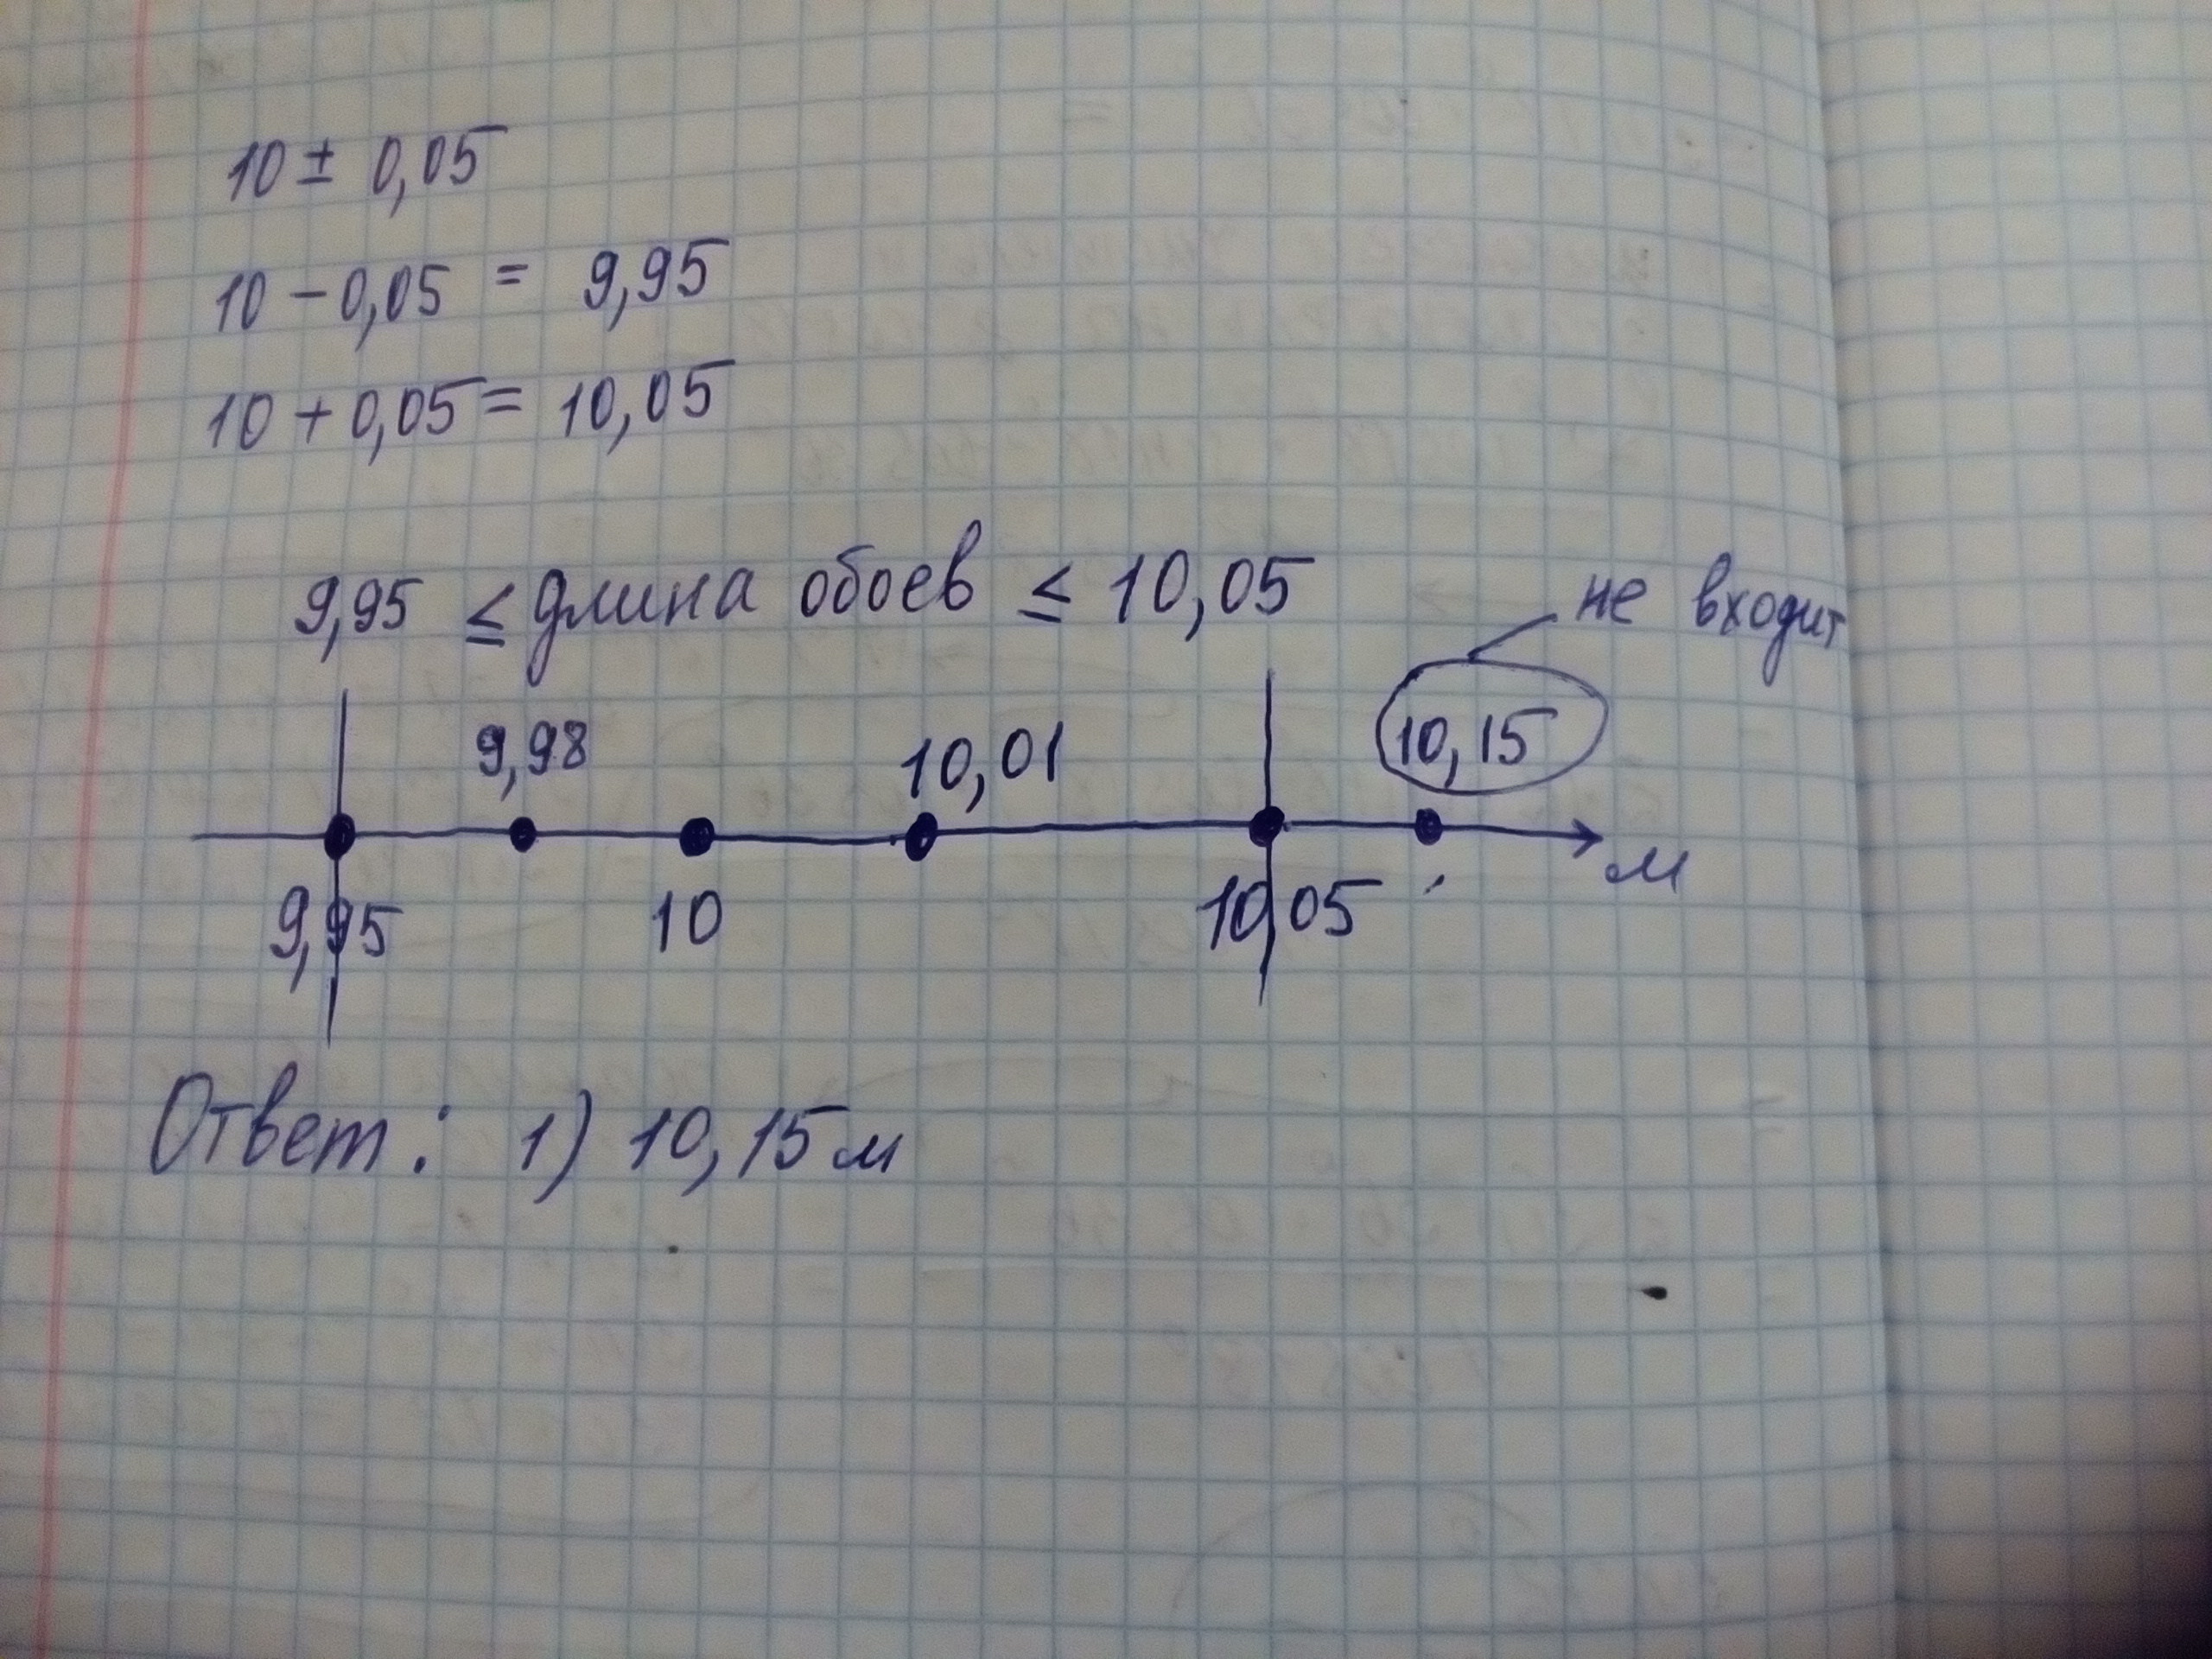 10 ± 0,05
10 - 0,05 = 9,95
10 + 0,05 = 10,05
9,95 ≤ длина обоев ≤ 10,05
не входит
9,98 10,01 10,15
9,95 10 10,05 м
Ответ: 1) 10,15 м